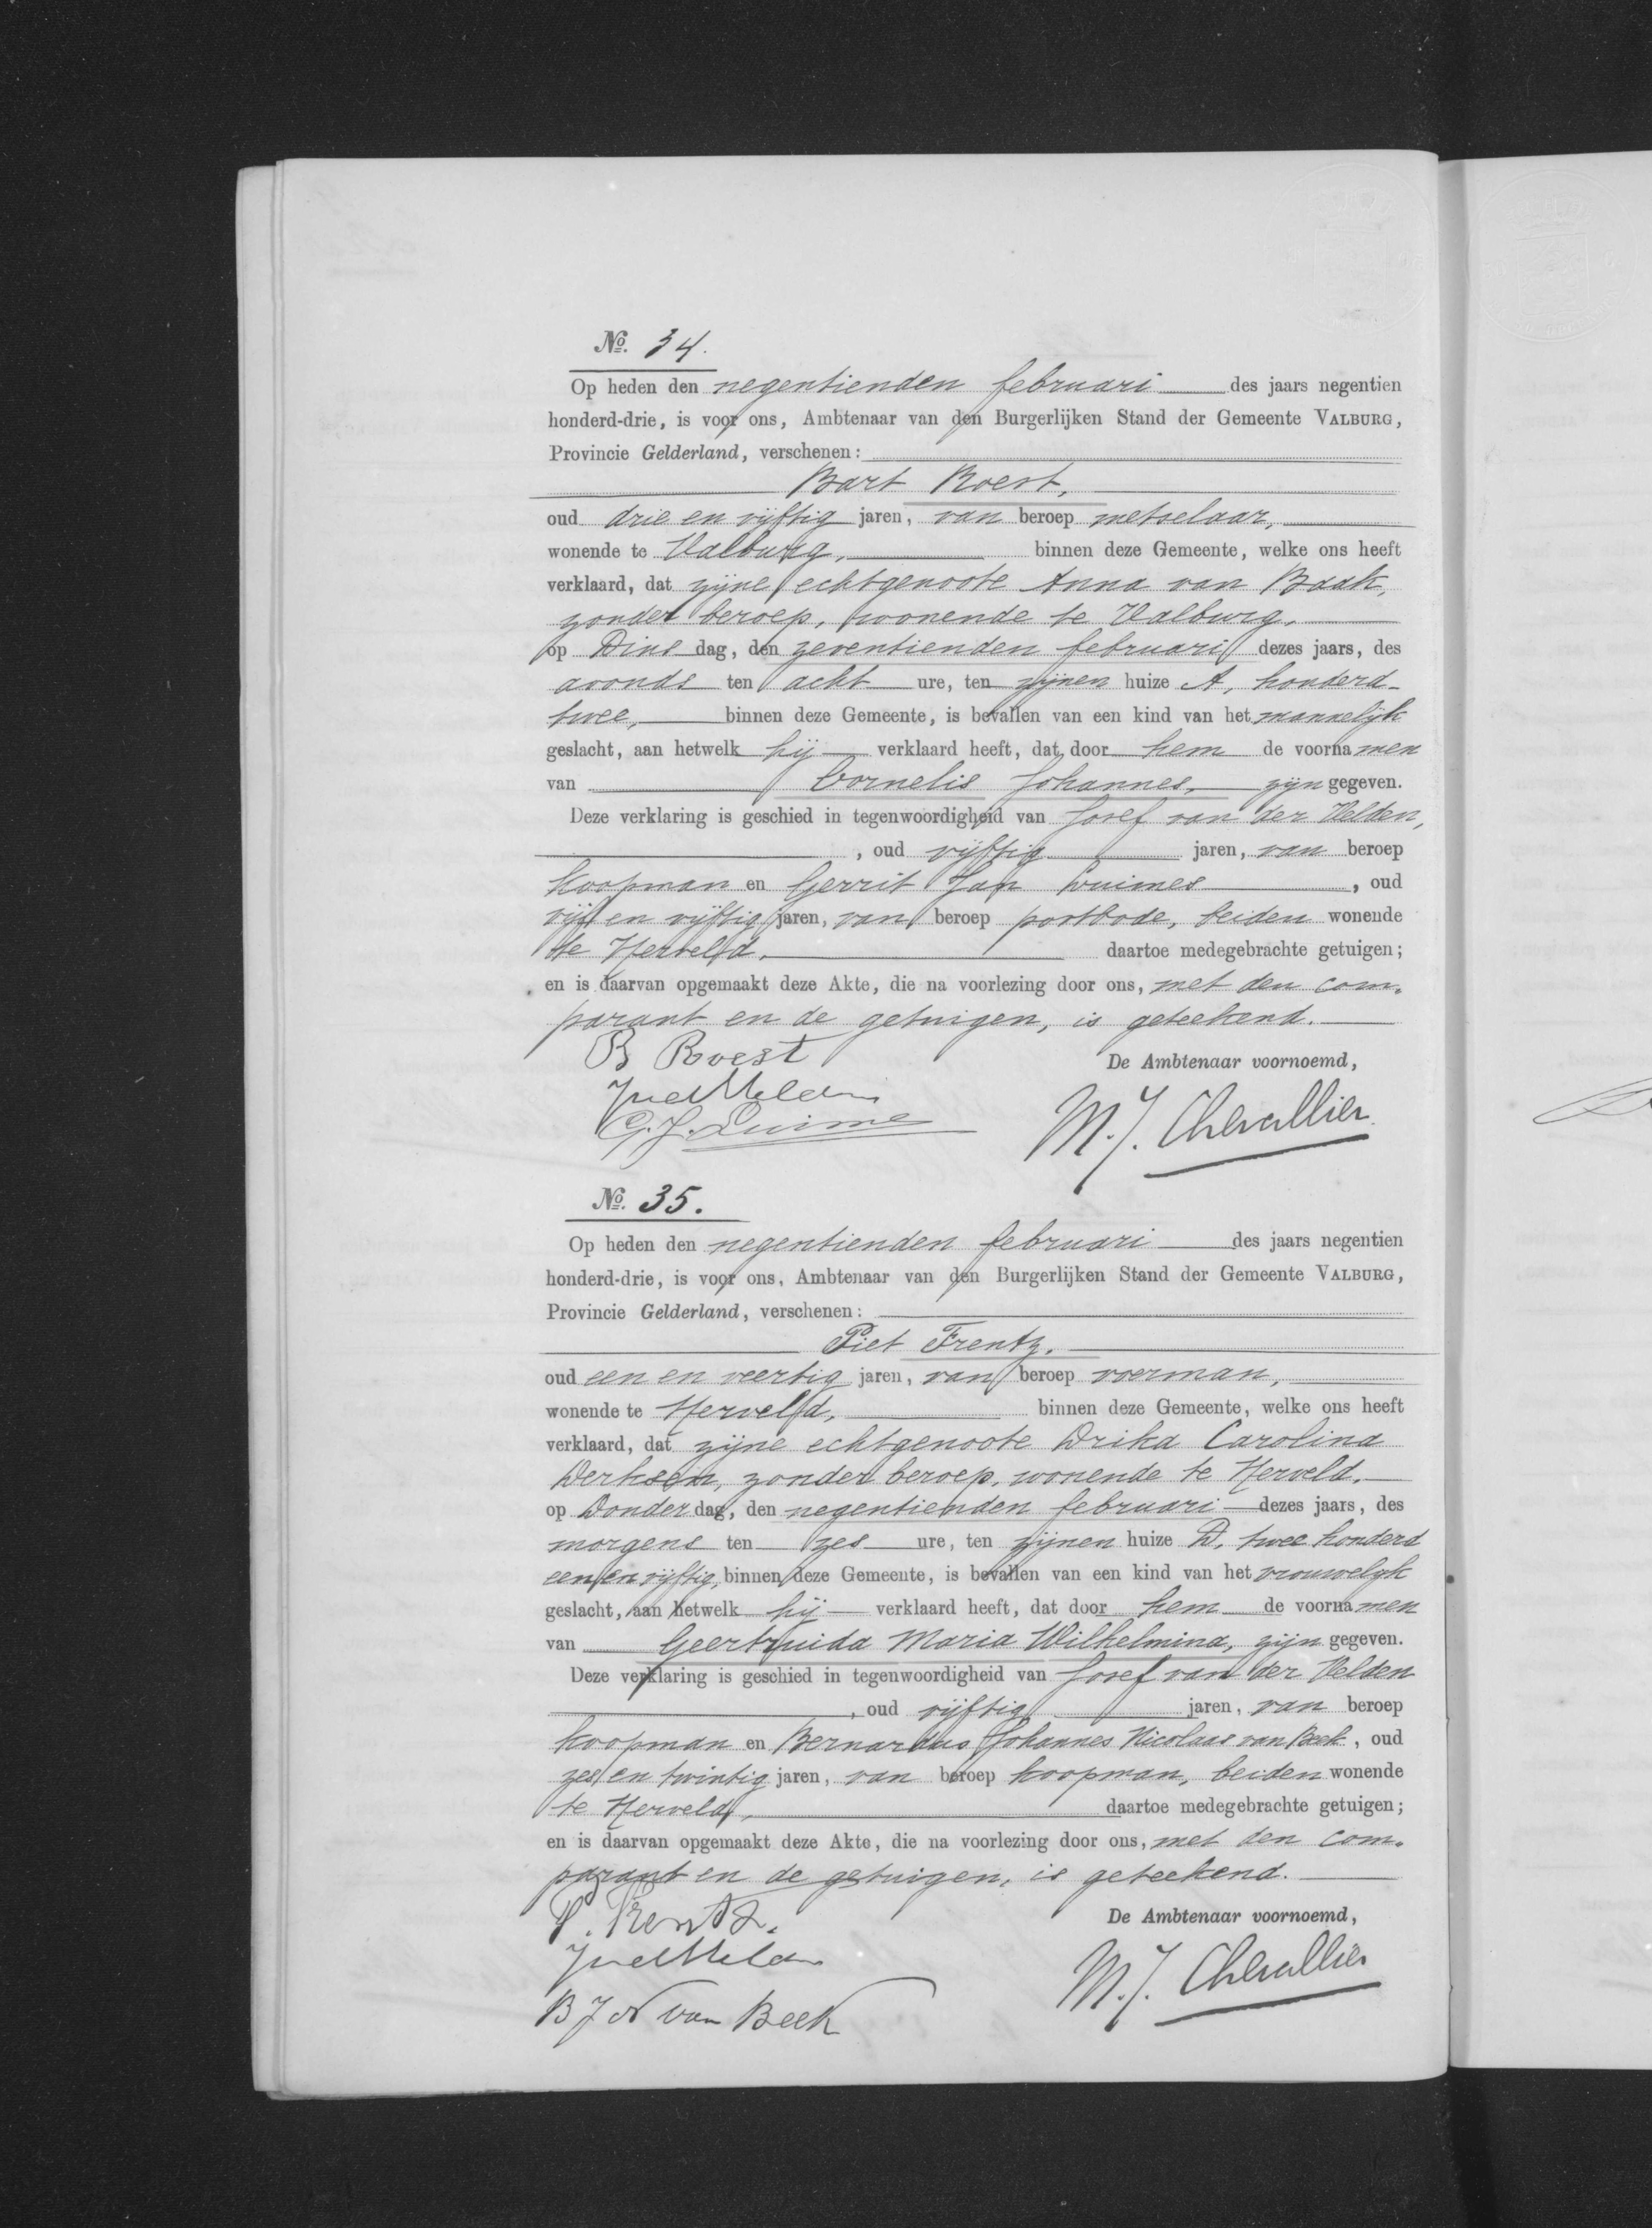 No. 34.
Op heden den negentienden februari des jaars negentien
honderd-drie, is voor ons, Ambtenaar van den Burgerlijken Stand der Gemeente VALBURG,
Provincie Gelderland, verschenen:
Bart Roest,
oud drie en vijftig jaren, van beroep metselaar,
wonende te Valburg, binnen deze Gemeente, welke ons heeft
verklaard, dat zijne echtgenoote Anna van Baak,
zonder beroep, wonende te Valburg,
op Dinsdag, den zeventienden februari dezes jaars, des
avonds ten acht ure, ten zijnen huize A, honderd-
twee, binnen deze Gemeente, is bevallen van een kind van het mannelijk
geslacht, aan hetwelk hij verklaard heeft, dat door hem de voornamen
van Cornelis Johannes, zijn gegeven.
Deze verklaring is geschied in tegenwoordigheid van Josef van der Velden,
, oud vijftig jaren, van beroep
koopman en Gerrit Jan Luimes, oud
vijf en vijftig jaren, van beroep postbode, beiden wonende
te Herveld, daartoe medegebrachte getuigen;
en is daarvan opgemaakt deze Akte, die na voorlezing door ons, met den com-
parant en de getuigen, is geteekend.
B Roest
De Ambtenaar voornoemd,
JvdVelden
G. J. Luime
M. J. Chevallier
No. 35.
Op heden den negentienden februari des jaars negentien
honderd-drie, is voor ons, Ambtenaar van den Burgerlijken Stand der Gemeente VALBURG,
Provincie Gelderland, verschenen:
Piet Frentz,
oud een en veertig jaren, van beroep voerman,
wonende te Herveld, binnen deze Gemeente, welke ons heeft
verklaard, dat zijne echtgenoote Drika Carolina
Derksen, zonder beroep, wonende te Herveld,
op Donderdag, den negentienden februari dezes jaars, des
morgens ten zes ure, ten zijnen huize D, twee honderd
een en vijftig, binnen deze Gemeente, is bevallen van een kind van het vrouwelijk
geslacht, aan hetwelk hij verklaard heeft, dat door hem de voornamen
van Geertruida Maria Wilhelmina, zijn gegeven.
Deze verklaring is geschied in tegenwoordigheid van Josef van der Velden
, oud vijftig jaren, van beroep
koopman en Bernardus Johannes Nicolaas van Beek, oud
zes en twintig jaren, van beroep koopman, beiden wonende
te Herveld, daartoe medegebrachte getuigen;
en is daarvan opgemaakt deze Akte, die na voorlezing door ons, met den com-
parant en de getuigen, is geteekend.
P. Frentz.
De Ambtenaar voornoemd,
JvdVelden
M. J. Chevallier
B J N van Beek